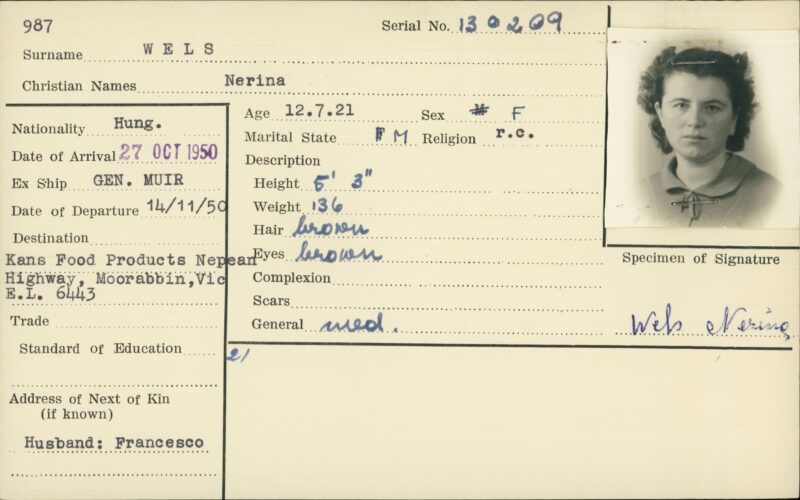 987
Serial No. 130209
Surname WELS
Christian Names Nerina
Nationality Hung.
Date of Arrival 27 OCT 1950
Ex Ship GEN. MUIR
Date of Departure 14/11/50
Destination
Kans Food Products Nepean
Highway, Moorabbin, Vic
E.L. 6443
Trade
Standard of Education
Address of Next of Kin
(if known)
Husband: Francesco
Age 12.7.21 Sex F
Marital State M Religion r.c.
Description
Height 5' 3"
Weight 136
Hair brown
Eyes brown
Complexion
Scars
General med.
21
Specimen of Signature
Wels Nerina